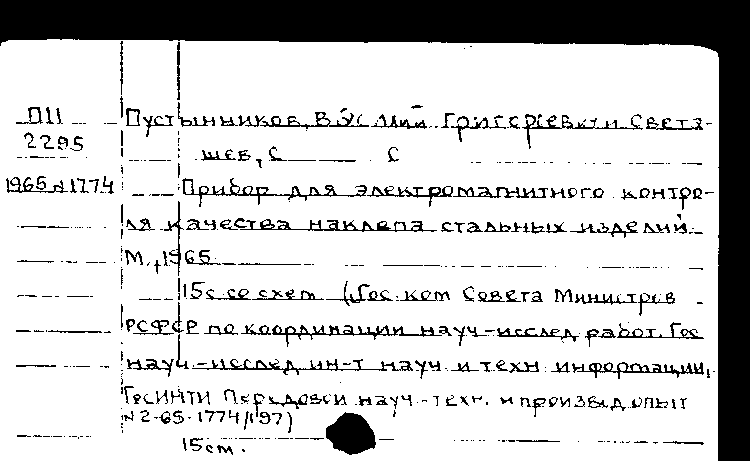 П11 Пустынников, Василий Григорьевич и Света-
2295 шев, С С
1965 № 1774 Прибор для электромагнитного контро-
ля качества наклепа стальных изделий.
М., 1965.
15с со схем. (Гос. ком Совета Министров
РСФСР по координации науч-исслед работ. Гос
науч-исслед ин-т науч и техн информации.
ГОСИНТИ Передовой науч.-техн. и произвед опыт
№ 2-65-1774/197)
15см.